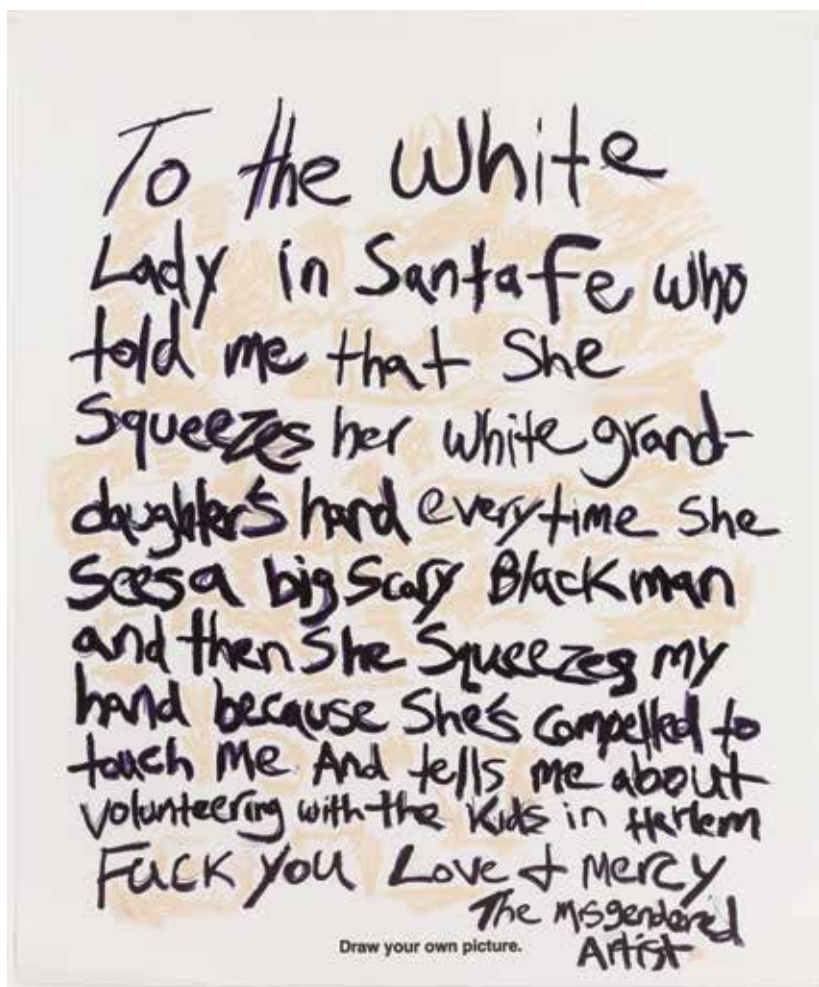 To the White
Lady in Santa Fe who
told me that She
Squeezes her white grand-
daughter's hand everytime She
Sees a big Scary Black man
and then She Squeezes my
hand because She's Compelled to
touch Me And tells me about
Volunteering with the Kids in Harlem
Fuck You Love & Mercy
The Misgendered
Artist
Draw your own picture.